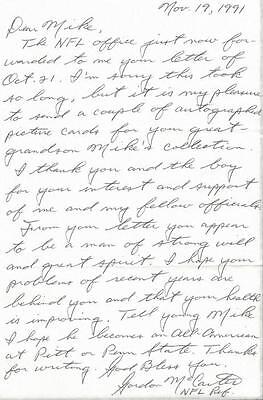 Nov. 19, 1991
Dear Mike,
The NFL office just now for-
warded to me your letter of
Oct. 31. I'm sorry this took
so long, but it is my pleasure
to send a couple of autographed
picture cards for your great-
grandson Mike's collection.
I thank you and the boy
for your interest and support
of me and my fellow officials.
From your letter you appear
to be a man of strong will
and great spirit. I hope your
problems of recent years are
behind you and that your health
is improving. Tell young Mike
I hope he becomes an All-American
at Pitt or Penn State. Thanks
for writing. God Bless You.
Gordon McCarter
NFL Ref.